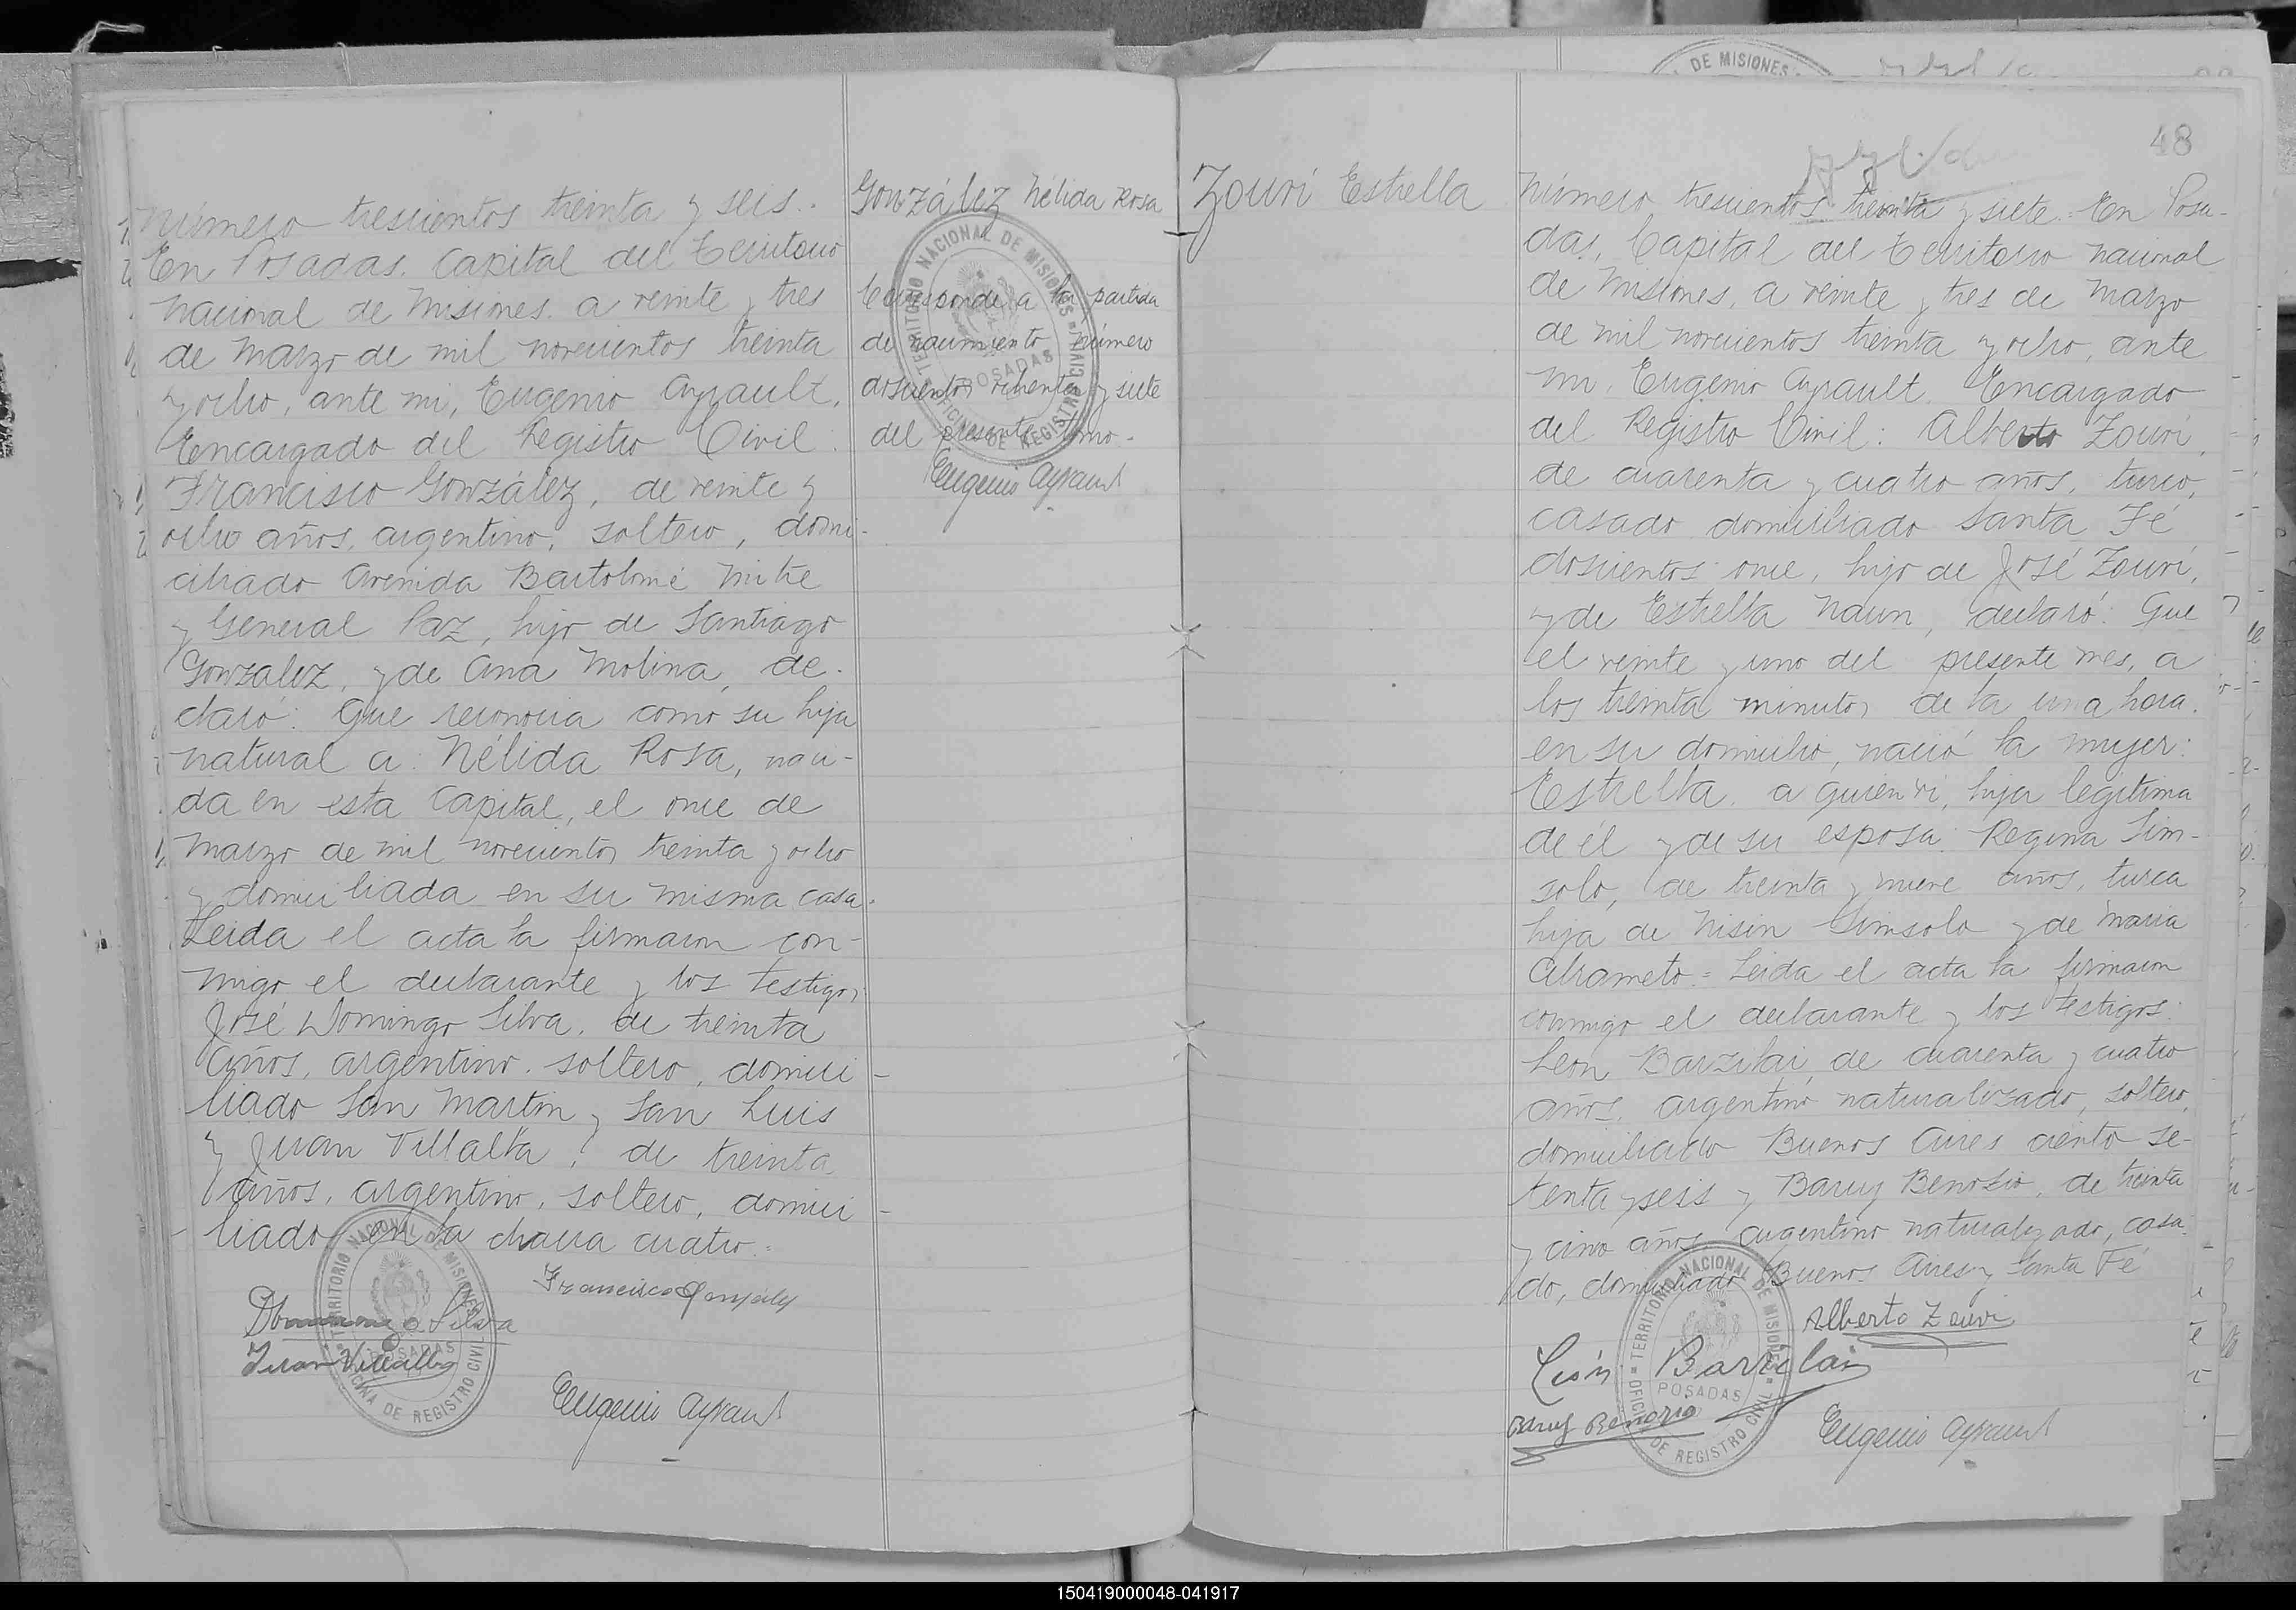 Número trescientos treinta y seis.
En Posadas. Capital del Territorio
nacional de Misiones. a veinte y tres
de Marzo de mil novecientos treinta
y ocho, ante mi, Eugenio Ayrault,
Encargado del Registro Civil:
Francisco González, de veinte y
ocho años, argentino, soltero, domi-
ciliado Avenida Bartolomé Mitre
y General Paz, hijo de Santiago
Gonzalez, y de Ana Molina, de-
claró: Que reconocia como su hija
natural a: Nélida Rosa, naci-
da en esta Capital, el once de
Marzo de mil novecientos treinta y ocho
y domiciliada en su misma casa.
Leida el acta la firmaron con-
migo el declarante y los testigos
José Domingo Silva, de treinta
años, argentino. soltero, domici-
liado San Martin y San Luis
y Juan Villalta, de treinta
años, argentino, soltero, domici-
liado en la chacra cuatro.=
Francisco Gonzalez
Domingo Silva
Juan Villalba
Eugenio Ayrault
González Nélida Rosa
Corresponde a la partida
de nacimiento número
doscientos ochenta y siete
del presente tomo.
Eugenio Ayrault
TERRITORIO NACIONAL DE MISIONES
POSADAS
OFICINA DE REGISTRO CIVIL
TERRITORIO NACIONAL DE MISIONES
POSADAS
OFICINA DE REGISTRO CIVIL
DE MISIONES
48
Zouri Estrella
Número trescientos treinta y siete. En Posa-
das, Capital del Territorio nacional
de Misiones, a veinte y tres de Marzo
de mil novecientos treinta y ocho, ante
mi, Eugenio Ayrault, Encargado
del Registro Civil: Alberto Zouri,
de cuarenta y cuatro años, turco,
casado domiciliado Santa Fé
doscientos once, hijo de José Zouri,
y de Estrella Naun, declaró: Que
el veinte y uno del presente mes, a
los treinta minutos de la una hora.
en su domicilio, nació la mujer:
Estrella, a quien vi, hija legitima
de él y de su esposa: Regina Sim-
solo, de treinta y nueve años, turca
hija de Nisin Simsolo y de Maria
Abrameto.= Leida el acta la firmaron
conmigo el declarante y los testigos:
Leon Barzilai, de cuarenta y cuatro
años, argentino naturalizado, soltero,
domiciliado Buenos Aires ciento se-
tenta y seis y Baruj Benozio, de treinta
y cinco años, argentino naturalizado, casa-
do, domiciliado Buenos Aires y Santa Fé
Alberto Zouri
León Barzilai
Baruj Benozio
Eugenio Ayrault
TERRITORIO NACIONAL DE MISIONES
POSADAS
OFICINA DE REGISTRO CIVIL
150419000048-041917